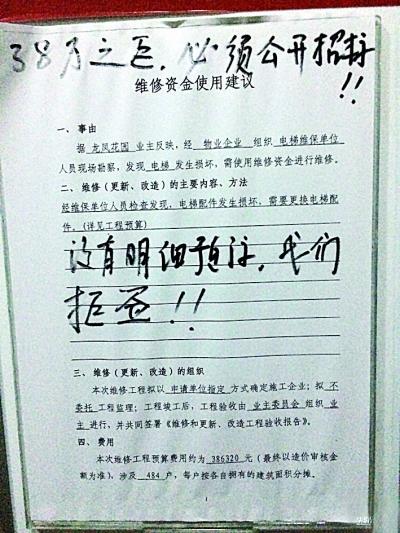 38万之巨,必须公开招标!!
维修资金使用建议
一、事由
据 龙凤花园 业主反映,经 物业企业 组织 电梯维保单位
人员现场勘察,发现 电梯 发生损坏,需使用维修资金进行维修。
二、维修(更新、改造)的主要内容、方法
经维保单位人员检查发现,电梯配件发生损坏,需要更换电梯配
件。(详见工程预算)
没有明细预决,我们
拒签!!
三、维修(更新、改造)的组织
本次维修工程拟以 申请单位指定 方式确定施工企业;拟 不
委托 工程监理;工程竣工后,工程验收由 业主委员会 组织 业
主 进行,并共同签署《维修和更新、改造工程验收报告》。
四、费用
本次维修工程预算费用约为 386320 元(最终以造价审核金
额为准),涉及 484 户,每户按各自拥有的建筑面积分摊。
1